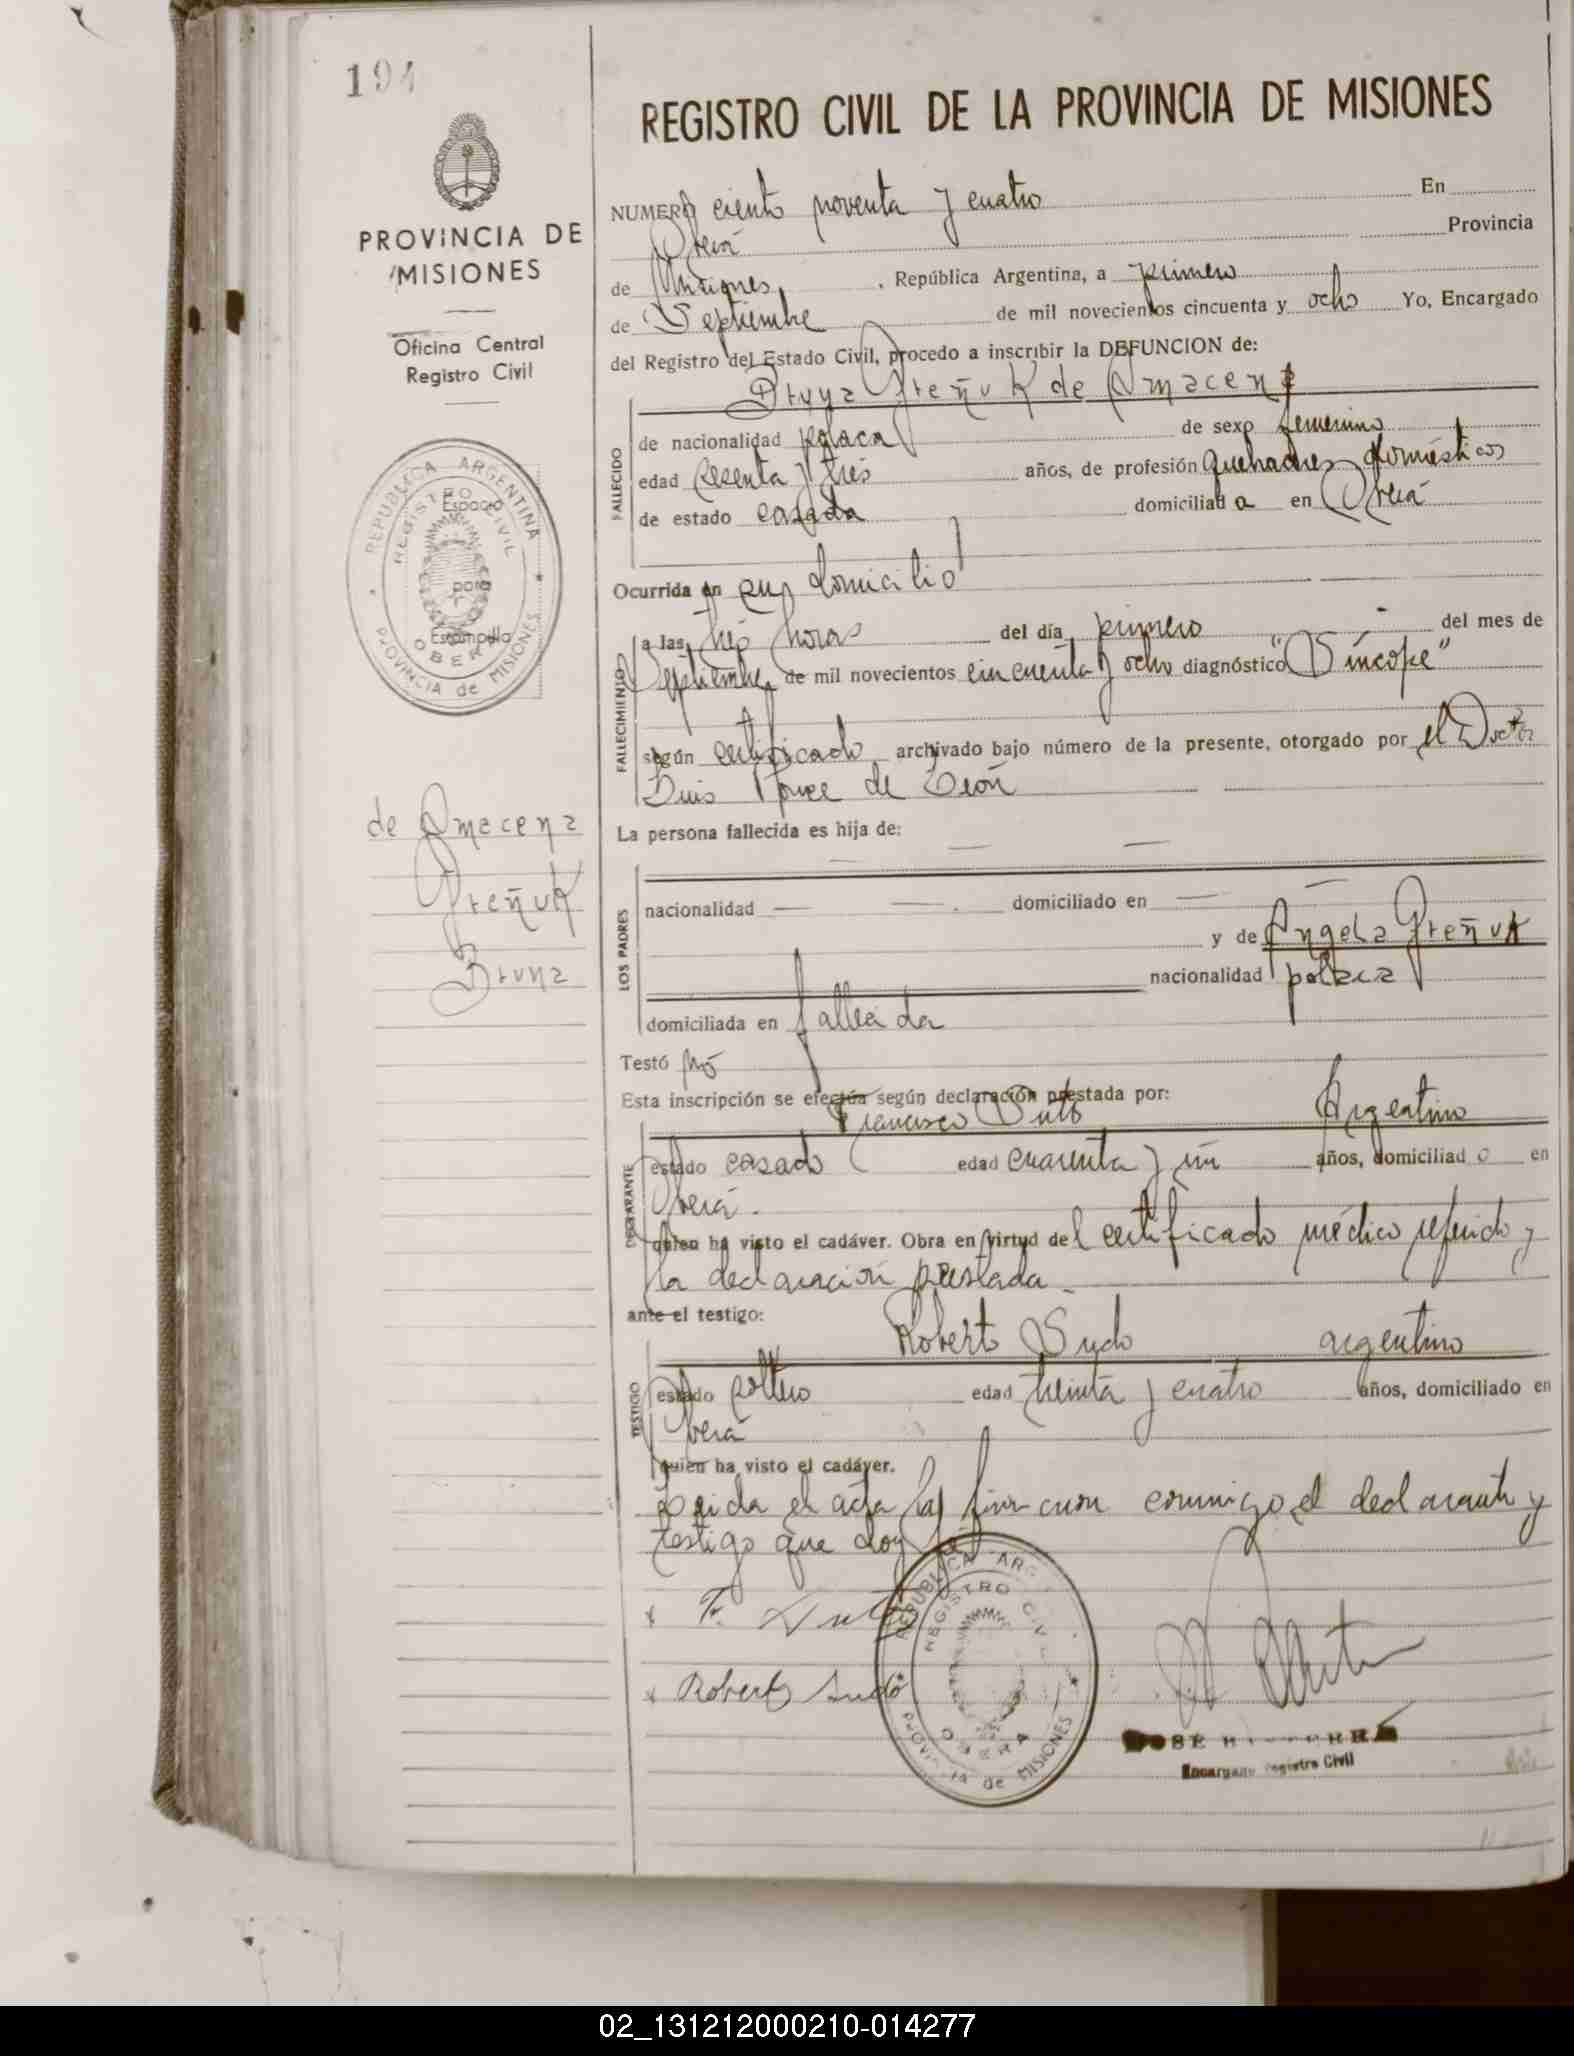 194
REGISTRO CIVIL DE LA PROVINCIA DE MISIONES
PROVINCIA DE
MISIONES
Oficina Central
Registro Civil
REPUBLICA ARGENTINA
REGISTRO CIVIL
Espacio
para
Estampilla
OBERA
PROVINCIA de MISIONES
de Amacena
Greñuk
Bruna
NUMERO ciento noventa y cuatro En
Oberá Provincia
de Misiones, República Argentina, a primero
de Septiembre de mil novecientos cincuenta y ocho Yo, Encargado
del Registro del Estado Civil, procedo a inscribir la DEFUNCION de:
Bruna Greñuk de Amacena
FALLECIDO
de nacionalidad polaca de sexo femenino
edad sesenta y tres años, de profesión quehaceres domésticos
de estado casada domiciliada en Oberá
Ocurrida en su domicilio
FALLECIMIENTO
a las tres horas del día primero del mes de
Septiembre de mil novecientos cincuenta y ocho diagnóstico "Síncope"
según certificado archivado bajo número de la presente, otorgado por el Doctor
Luis Ponce de León
La persona fallecida es hija de:
LOS PADRES
nacionalidad — — . domiciliado en —
y de Angela Greñuk
nacionalidad polaca
domiciliada en fallecida
Testó no
Esta inscripción se efectúa según declaración prestada por:
Francisco Argentino
DECLARANTE
estado casado edad cuarenta y un años, domiciliado en
Oberá.
quien ha visto el cadáver. Obra en virtud del certificado médico referido y
la declaración prestada.
ante el testigo:
Roberto Sudo argentino
TESTIGO
estado soltero edad treinta y cuatro años, domiciliado en
Oberá
quien ha visto el cadáver.
Leida el acta la firman conmigo el declarante y
testigo que doy fé
REPUBLICA ARG
REGISTRO CIV
OBERA
PROVINCIA de MISIONES
x F.
x Roberto Sudo
JOSE
Encargado Registro Civil
02_131212000210-014277